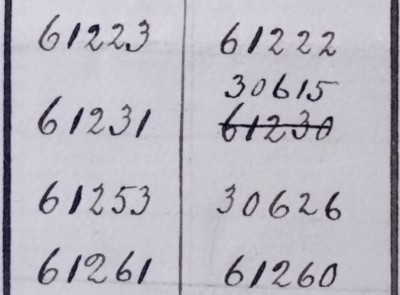 61223 61222
30615
61231 61230
61253 30626
61261 61260